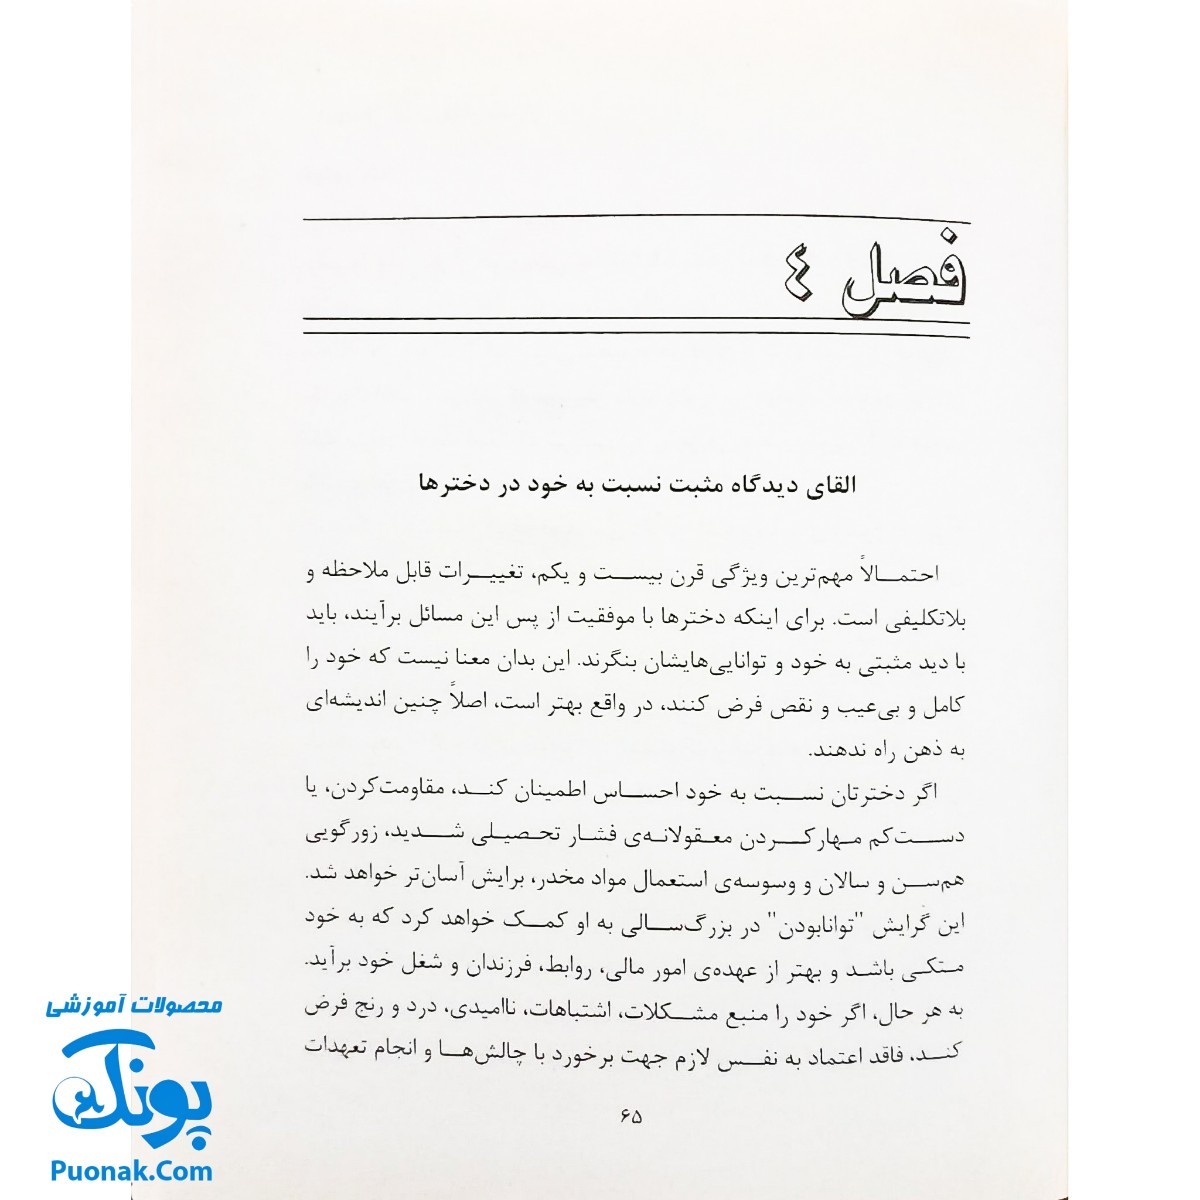 فصل ٤
القای دیدگاه مثبت نسبت به خود در دخترها
احتمالاً مهم‌ترین ویژگی قرن بیست و یکم، تغییرات قابل ملاحظه و
بلاتکلیفی است. برای اینکه دخترها با موفقیت از پس این مسائل برآیند، باید
با دید مثبتی به خود و توانایی‌هایشان بنگرند. این بدان معنا نیست که خود را
کامل و بی‌عیب و نقص فرض کنند، در واقع بهتر است، اصلاً چنین اندیشه‌ای
به ذهن راه ندهند.
اگر دخترتان نسبت به خود احساس اطمینان کند، مقاومت‌کردن، یا
دست‌کم مهارکردن معقولانه‌ی فشار تحصیلی شدید، زورگویی
هم‌سن و سالان و وسوسه‌ی استعمال مواد مخدر، برایش آسان‌تر خواهد شد.
این گرایش "توانابودن" در بزرگ‌سالی به او کمک خواهد کرد که به خود
متکی باشد و بهتر از عهده‌ی امور مالی، روابط، فرزندان و شغل خود برآید.
به هر حال، اگر خود را منبع مشکلات، اشتباهات، ناامیدی، درد و رنج فرض
کند، فاقد اعتماد به نفس لازم جهت برخورد با چالش‌ها و انجام تعهدات
۶۵
محصولات آموزشی
پونک
Puonak.Com